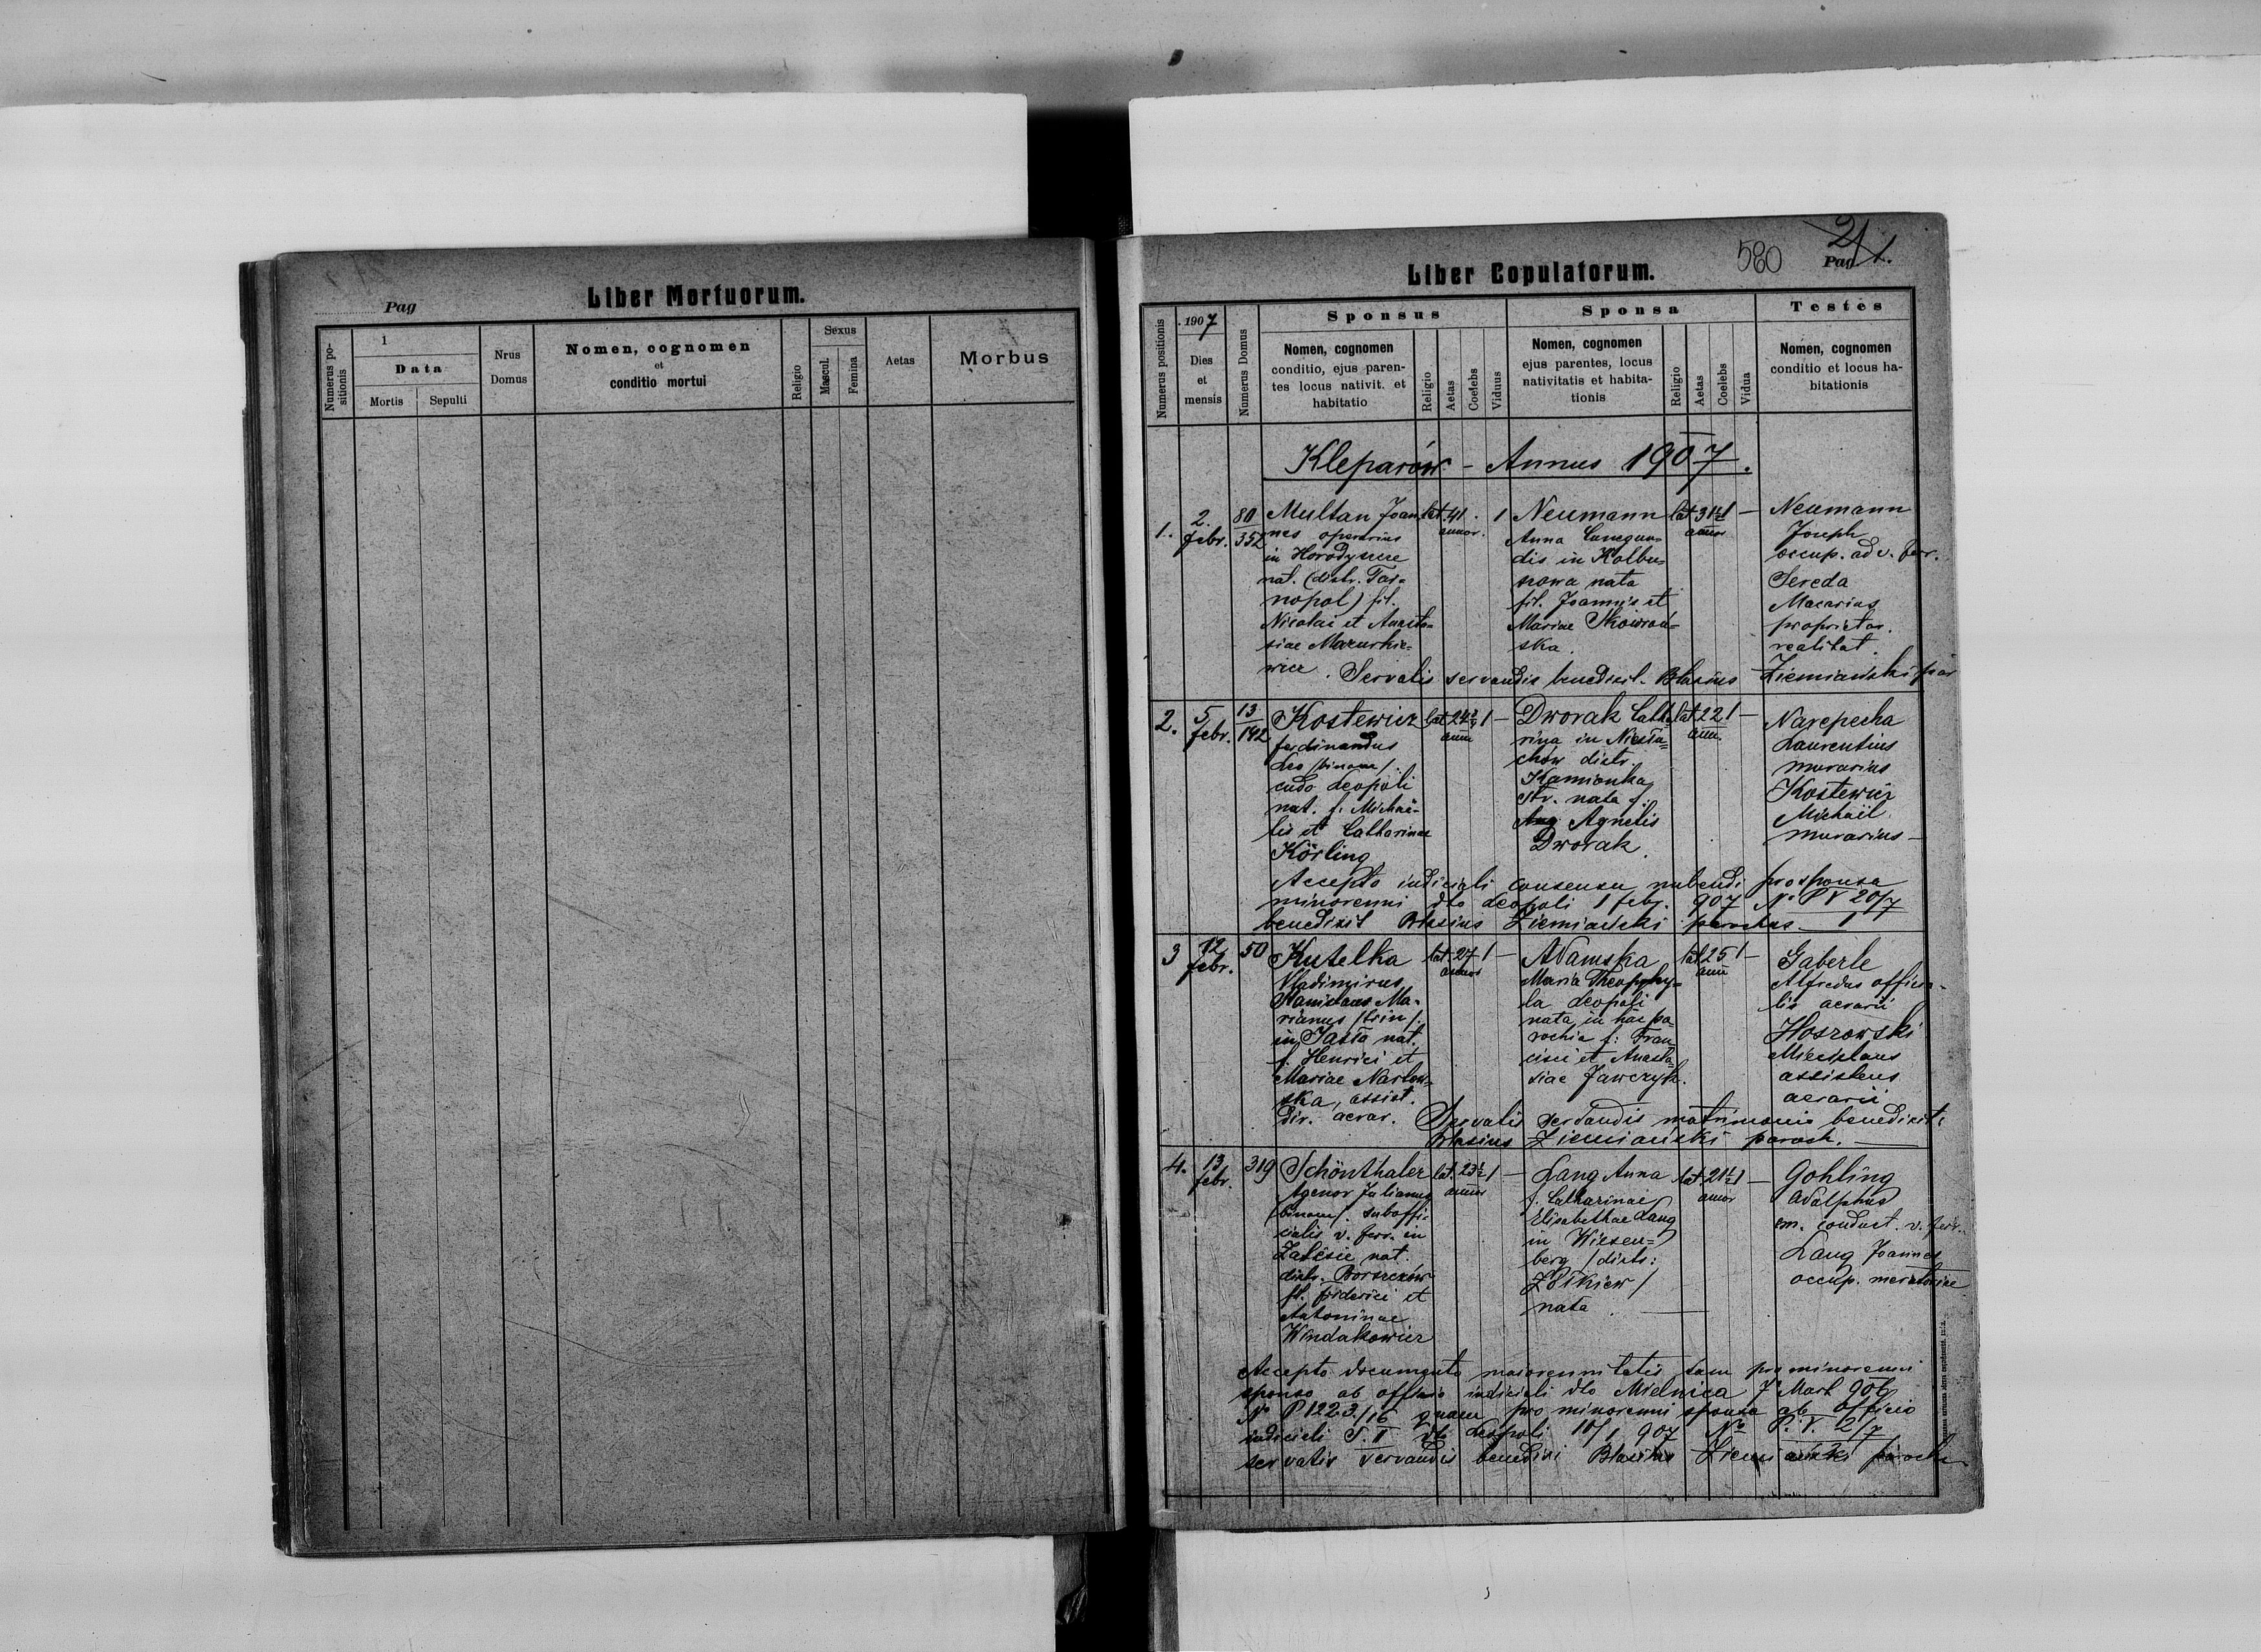 Pag
Liber Mortuorum.
Numerus po-
sitionis
1
Data
Mortis
Sepulti
Nrus
Domus
Nomen, cognomen
et
conditio mortui
Religio
Sexus
Mascul.
Femina
Aetas
Morbus
580
21
Pag. 1.
Liber Copulatorum.
Numerus positionis
1907
Dies
et
mensis
Numerus Domus
Sponsus
Nomen, cognomen
conditio, ejus paren-
tes locus nativit. et
habitatio
Religio
Aetas
Coelebs
Viduus
Sponsa
Nomen, cognomen
ejus parentes, locus
nativitatis et habita-
tionis
Religio
Aetas
Coelebs
Vidua
Testes
Nomen, cognomen
conditio et locus ha-
bitationis
Kleparów - Annus 1907.
1.
2.
febr.
80
352
Multan Joan
nes operarius
in Horodyszcze
nat. (distr. Tar=
nopol) fil.
Nicolai et Anasta=
siae Mazurkie=
wicz.
lat. 41 . 1
annor.
Neumann
Anna Cunegun=
dis in Kolbu=
szowa nata
fil. Joannis et
Mariae Skowroń=
ska.
lat 31½ 1 —
annor
Neumann
Joseph
occup. ad v. ferr.
Sereda
Macarius
proprietar.
realitat.
Servatis servandis benedixit Blasius Ziemiański par
2.
5
febr.
13
142
Kostewicz
Ferdinandus
Leo /binom/
cudo Leopoli
nat. f. Michaë-
lis et Catharinae
Körling
lat. 24 1 —
ann
Dworak Catha
rina in Niesta=
chow distr.
Kamionka
Str. nata f.
Agnetis
Dworak.
lat 22 1 —
ann.
Narepecha
Laurentius
murarius
Kostewicz
Michaël
murarius —
Accepto judiciali consensu nubendi pro sponsa
minorenni dto Leopoli 1 febr. 907 N. P V 20/7
1
benedixit Blasius Ziemiański parochus —
3
12
febr.
50
Kutelka
Vladimirus
Stanislaus Ma-
rianus /trin/.
in Jasła nat.
f. Henrici et
Mariae Narlow=
ska, assist.
dir. aerar.
lat. 27 1 —
annor
Adamska
Maria Theophy=
la Leopoli
nata, in hac pa=
rochia f: Fran=
cisci et Anasta=
siae Jawczyk.
lat 25 1 —
ann
Gaberle
Alfredus officia-
lis aerarii
Hoszowski
Miecislaus
assistens
aerarii
Servatis servandis matrimonio benedixit
Blasius Ziemiański paroch. —
4.
13
febr.
319
Schönthaler
Agenor Julianus
/binom/ suboffi=
cialis v. ferr. in
Zalesie nat.
distr. Borszczów
fil. Friderici et
Antoninae
Windakowicz
lat. 23½ 1 —
annor
Lang Anna
f. Catharinae
Elisabethae Lang
in Wiesen=
berg /distr:
Żółkiew/
nata. —
lat. 21½ 1 —
annor
Gohling
Adolphus
em. conduct. v. ferr.
Lang Joannes
occup. mercatoriae
Accepto documento maiorennitatis tam pro minorenni
sponso ab officio judiciali dto Mielnica 7 Mart 906
N. P 122 3/16 quam pro minorenni sponsa ab officio
judiciali S. I dto Leopoli 10/1 907 No P. V. 2/7
servatis servandis benedixi Blasius Ziemiański paroch.